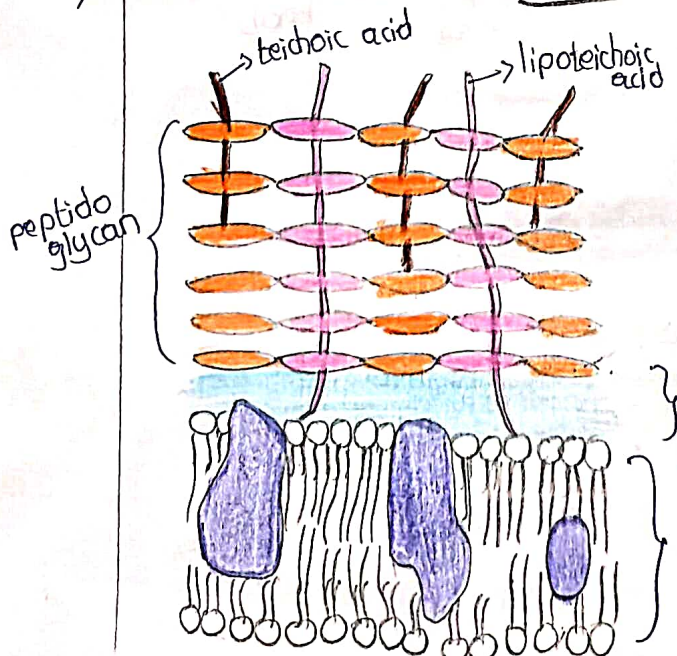 teichoic acid
lipoteichoic
acid
peptido
glycan